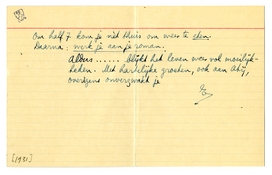 Om half 7 kom je niet thuis om weer te eten.
Daarna: werk je aan je roman.
Alors ...... blijkt het leven weer vol moeilijk-
heden. Met hartelijke groeten, ook aan
overigens onverzwakt je
[1931]